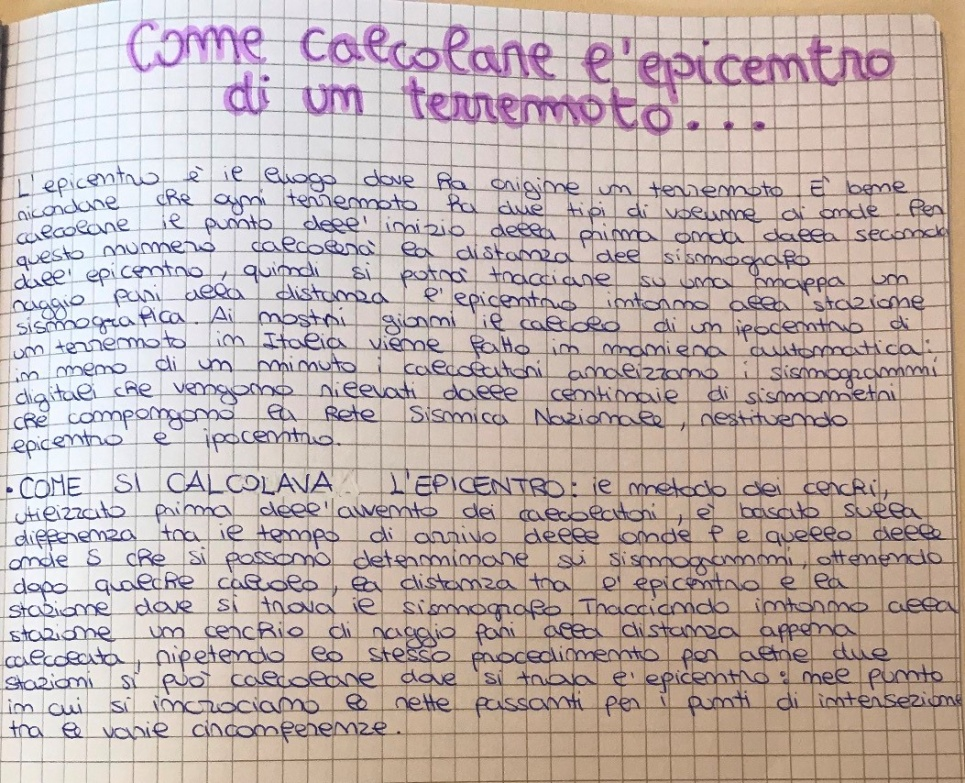 Come calcolare l'epicentro
di un terremoto...
L'epicentro è il luogo dove ha origine un terremoto È bene
ricordare che ogni terremoto ha due tipi di volume di onde. Per
calcolare il punto dell'inizio della prima onda dalla seconda
questo nummero calcolerà la distanza del sismografo
dall'epicentro, quindi si potrà tracciare su una mappa un
raggio pari alla distanza l'epicentro intorno alla stazione
sismografica. Ai nostri giorni il calcolo di un ipocentro di
un terremoto in Italia viene fatto in maniera automatica:
in meno di un minuto i calcolatori analizzano i sismogrammi
digitali che vengono rilevati dalle centinaie di sismometri
che compongono la Rete Sismica Nazionale, restituendo
epicentro e ipocentro.
• COME SI CALCOLAVA L'EPICENTRO: il metodo dei cerchi,
utilizzato prima dell'avvento dei calcolatori, è basato sulla
differenza tra il tempo di arrivo delle onde P e quello delle
onde S che si possono determinare sui sismogrammi, ottenendo
dopo qualche calcolo, la distanza tra l'epicentro e la
stazione dove si trova il sismografo Tracciando intorno alla
stazione un cerchio di raggio pari alla distanza appena
calcolata, ripetendo lo stesso procedimento per altre due
stazioni si può calcolare dove si trova l'epicentro: nel punto
in cui si incrociano le rette passanti per i punti di intersezione
tra le varie circonferenze.